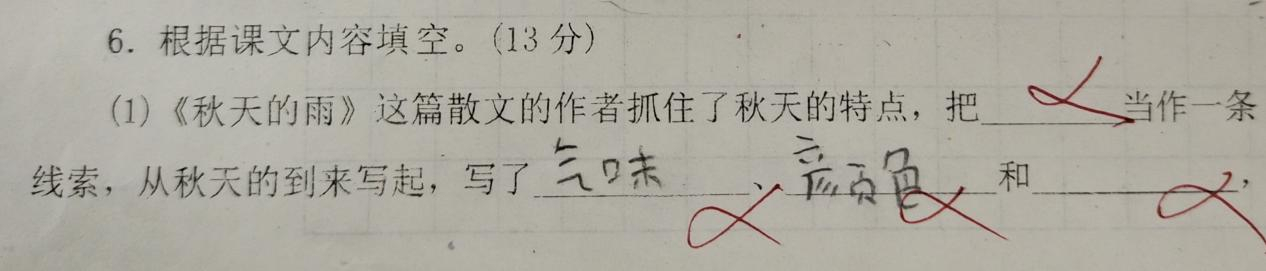 6. 根据课文内容填空。(13分)
(1)《秋天的雨》这篇散文的作者抓住了秋天的特点，把________当作一条
线索，从秋天的到来写起，写了气味、颜色和________，